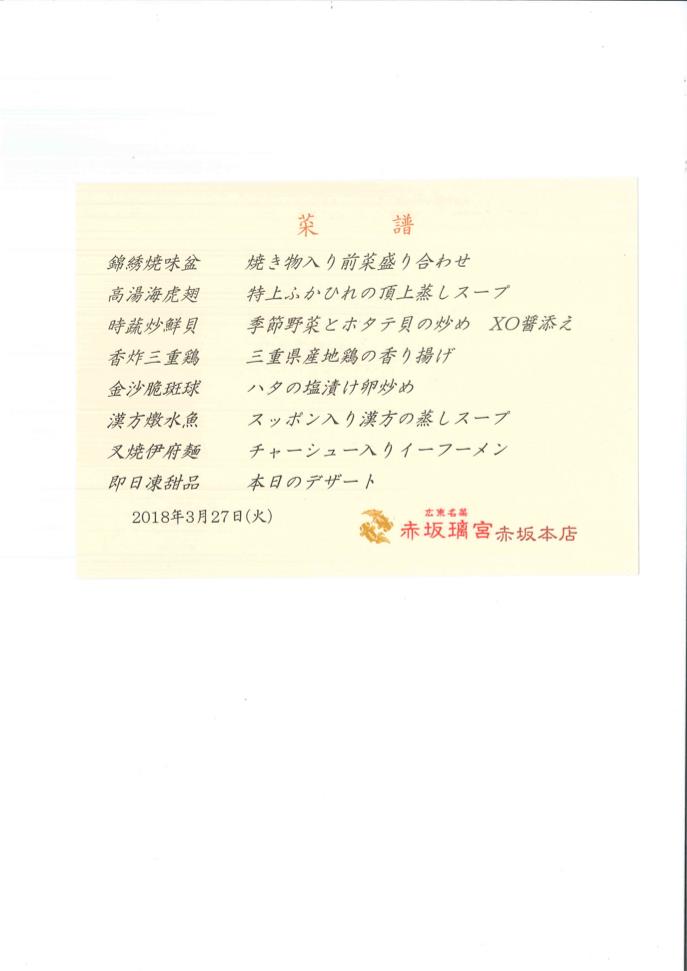 菜 譜
錦綉焼味盆 焼き物入り前菜盛り合わせ
高湯海虎翅 特上ふかひれの頂上蒸しスープ
時蔬炒鮮貝 季節野菜とホタテ貝の炒め XO醤添え
香炸三重鶏 三重県産地鶏の香り揚げ
金沙脆斑球 ハタの塩漬け卵炒め
漢方燉水魚 スッポン入り漢方の蒸しスープ
叉焼伊府麺 チャーシュー入りイーフーメン
即日凍甜品 本日のデザート
2018年3月27日(火)
広東名菜
赤坂璃宮赤坂本店